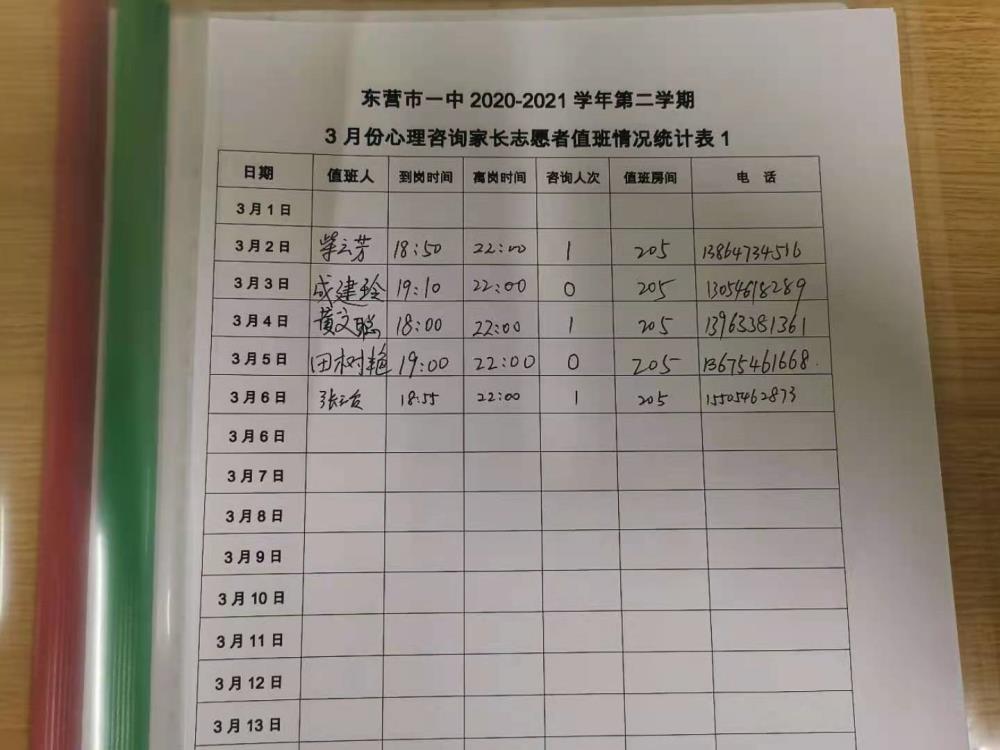 东营市一中 2020-2021 学年第二学期
3 月份心理咨询家长志愿者值班情况统计表 1
日期 值班人 到岗时间 离岗时间 咨询人次 值班房间 电 话
3 月 1 日
3 月 2 日 柴云芳 18:50 22:00 1 205 13864734516
3 月 3 日 成建玲 19:10 22:00 0 205 13054618289
3 月 4 日 黄文聪 18:00 22:00 1 205 13963381361
3 月 5 日 田树艳 19:00 22:00 0 205 13675461668.
3 月 6 日 18:55 22:00 1 205 15505462873
3 月 6 日
3 月 7 日
3 月 8 日
3 月 9 日
3 月 10 日
3 月 11 日
3 月 12 日
3 月 13 日